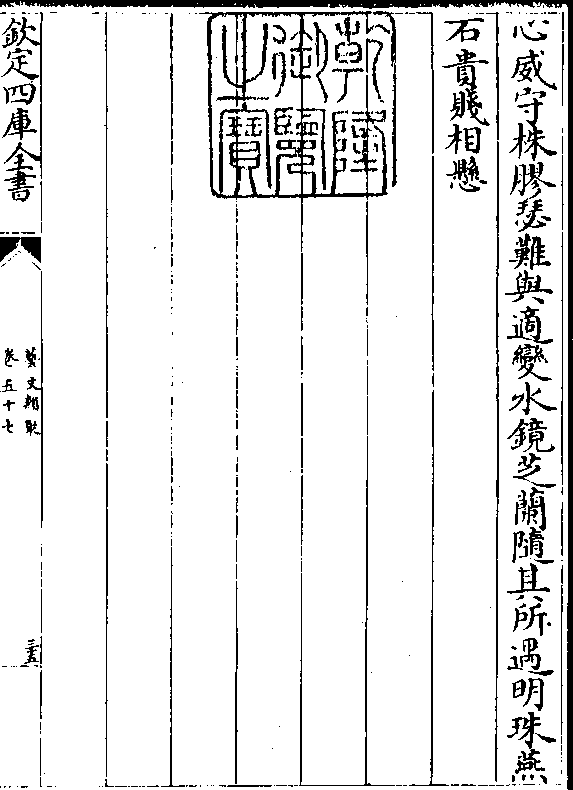 心威守株膠瑟難與適變水鏡芝蘭隨其所遇明珠燕
石貴賤相懸
乾隆
御覽
之寶
欽定四庫全書
藝文類聚
卷五十七
三五